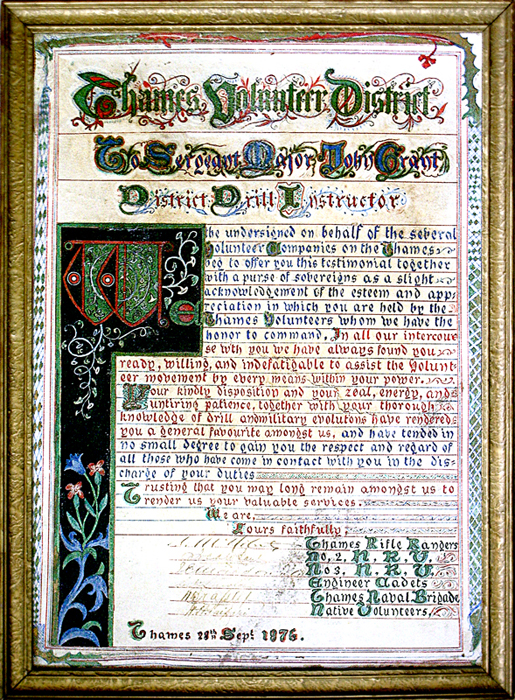 Thames Volunteer District
To Sergeant Major John Grant
District Drill Instructor
We the undersigned on behalf of the several
Volunteer Companies on the Thames
beg to offer you this testimonial together
with a purse of sovereigns as a slight
acknowledgement of the esteem and app-
reciation in which you are held by the
Thames Volunteers whom we have the
honor to command. In all our intercour-
se wth you we have always found you
ready, willing, and indefatigable to assist the Volunt-
eer movement by every means within your power.
Your kindly disposition and your zeal, energy, and
untiring patience, together with your thorough
knowledge of drill andmilitary evolutons have rendered
you a general favourite amongst us, and have tended in
no small degree to gain you the respect and regard of
all those who have come in contact with you in the dis-
charge of your duties
Trusting that you may long remain amongst us to
render us your valuable services.
We are,
Yours faithfully
Thames Rifle Rangers
No, 2, N. R. V.
No 3, N. R. V.
Engineer Cadets
Thames Naval Brigade
Native Volunteers,
Thames 28th Sept 1876.